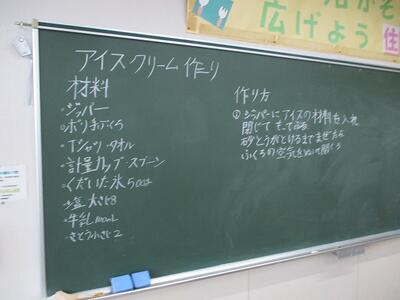 広げよう 住
アイスクリーム作り
材料
・ジッパー
・ポリ手ぶくろ
・Tシャツ・タオル
・計量カップ・スプーン
・くだいた氷 500g
・塩 大さじ8
・牛乳 100mL
・さとう小さじ2
作り方
① ジッパーにアイスの材料を入れ
閉じて
砂とうがとけるまでまぜたら
ふくろの空気をぬいて閉じる